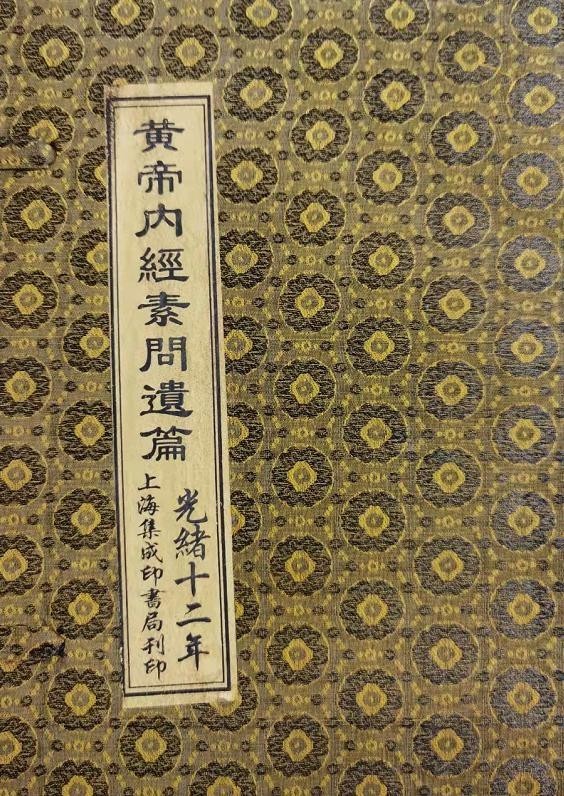 黄帝内經素問遺篇
光緒十二年
上海集成印書局刊印